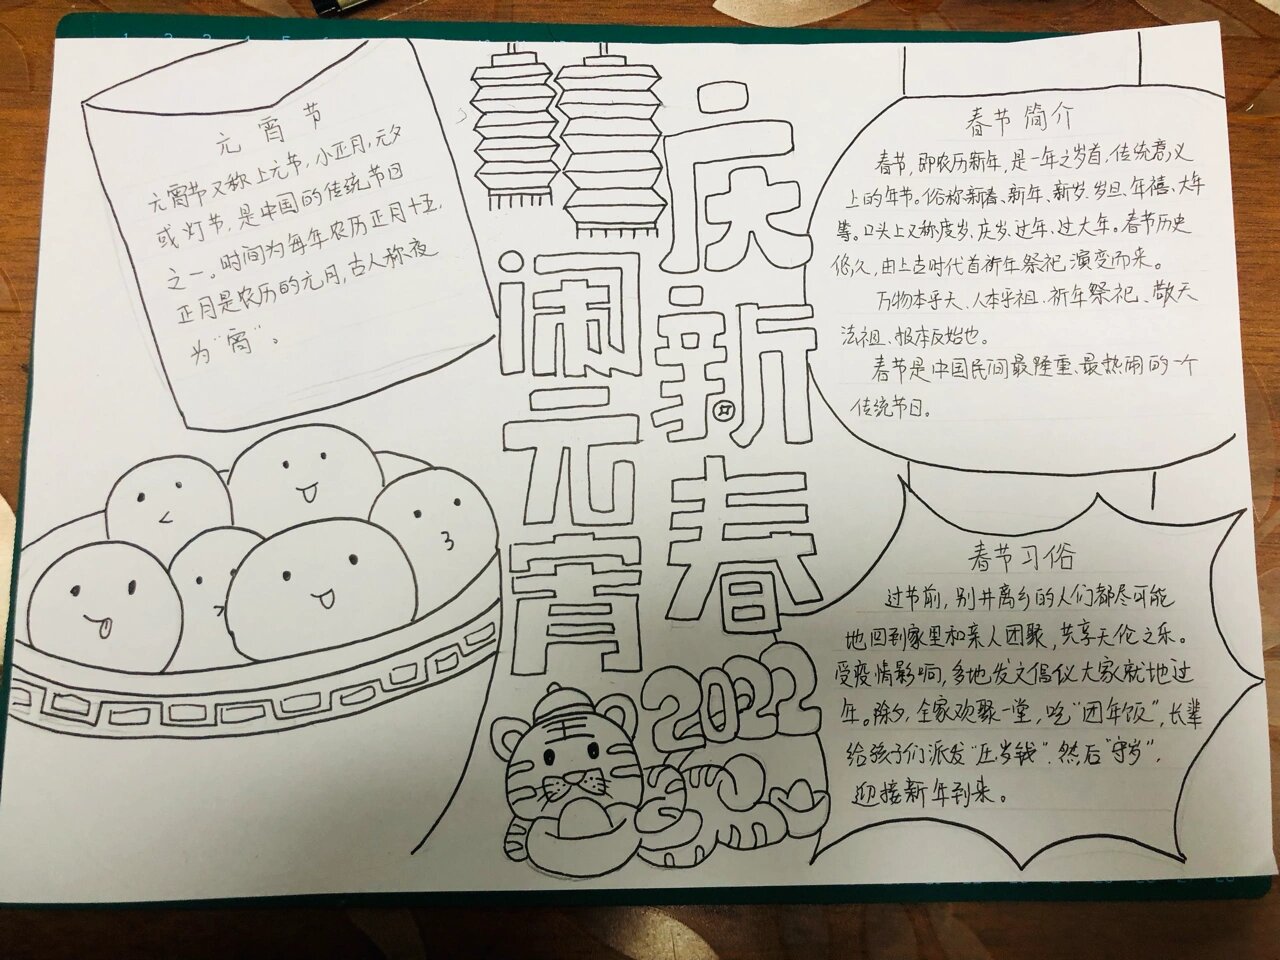 元宵节
元宵节又称上元节,小正月,元夕
或灯节,是中国的传统节日
之一。时间为每年农历正月十五.
正月是农历的元月,古人称夜
为"宵"。
庆新春
闹元宵
2022
春节简介
春节,即农历新年,是一年之岁首,传统意义
上的年节。俗称新春、新年、新岁、岁旦、年禧、大年
等。口头上又称度岁、庆岁、过年、过大年。春节历史
悠久,由上古时代首祈年祭祀演变而来。
万物本乎天、人本乎祖、祈年祭祀、敬天
法祖、报本反始也。
春节是中国民间最隆重、最热闹的一个
传统节日。
春节习俗
过节前,别井离乡的人们都尽可能
地回到家里和亲人团聚,共享天伦之乐。
受疫情影响,多地发文倡仪大家就地过
年。除夕,全家欢聚一堂,吃"团年饭",长辈
给孩子们派发"压岁钱".然后"守岁",
迎接新年到来。